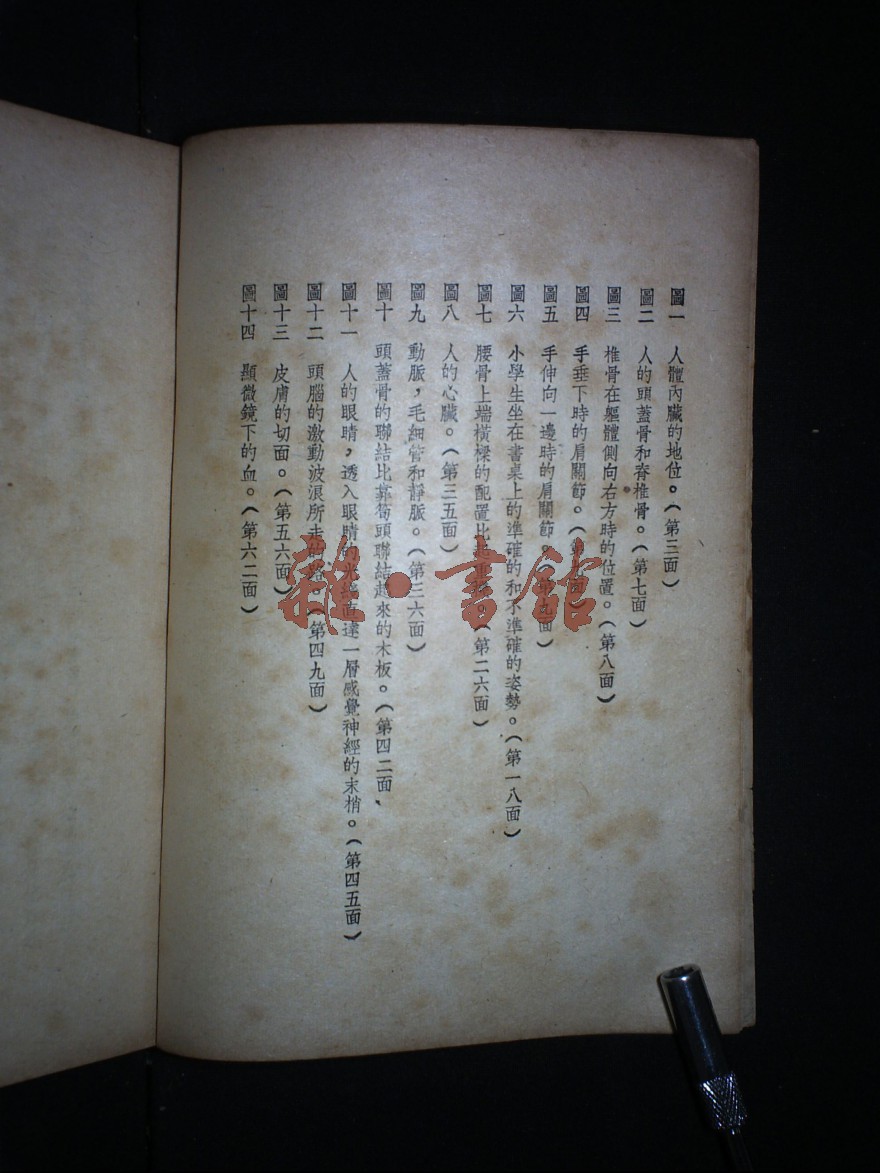 圖一　人體內臟的地位。(第三面)
圖二　人的頭蓋骨和脊椎骨。(第七面)
圖三　椎骨在軀體側向右方時的位置。(第八面)
圖四　手垂下時的肩關節。(第 面)
圖五　手伸向一邊時的肩關節。(第九面)
圖六　小學生坐在書桌上的準確的和不準確的姿勢。(第一八面)
圖七　腰骨上端橫樑的配置比起重 (第二六面)
圖八　人的心臟。(第三五面)
圖九　動脈，毛細管和靜脈。(第三六面)
圖十　頭蓋骨的聯結比靠筍頭聯結起來的木板。(第四二面、
圖十一　人的眼睛，透入眼睛的光線直達一層感覺神經的末梢。(第四五面)
圖十二　頭腦的激動波浪所走的路 (第四九面)
圖十三　皮膚的切面。(第五六面)
圖十四　顯微鏡下的血。(第六二面)
雜·書館